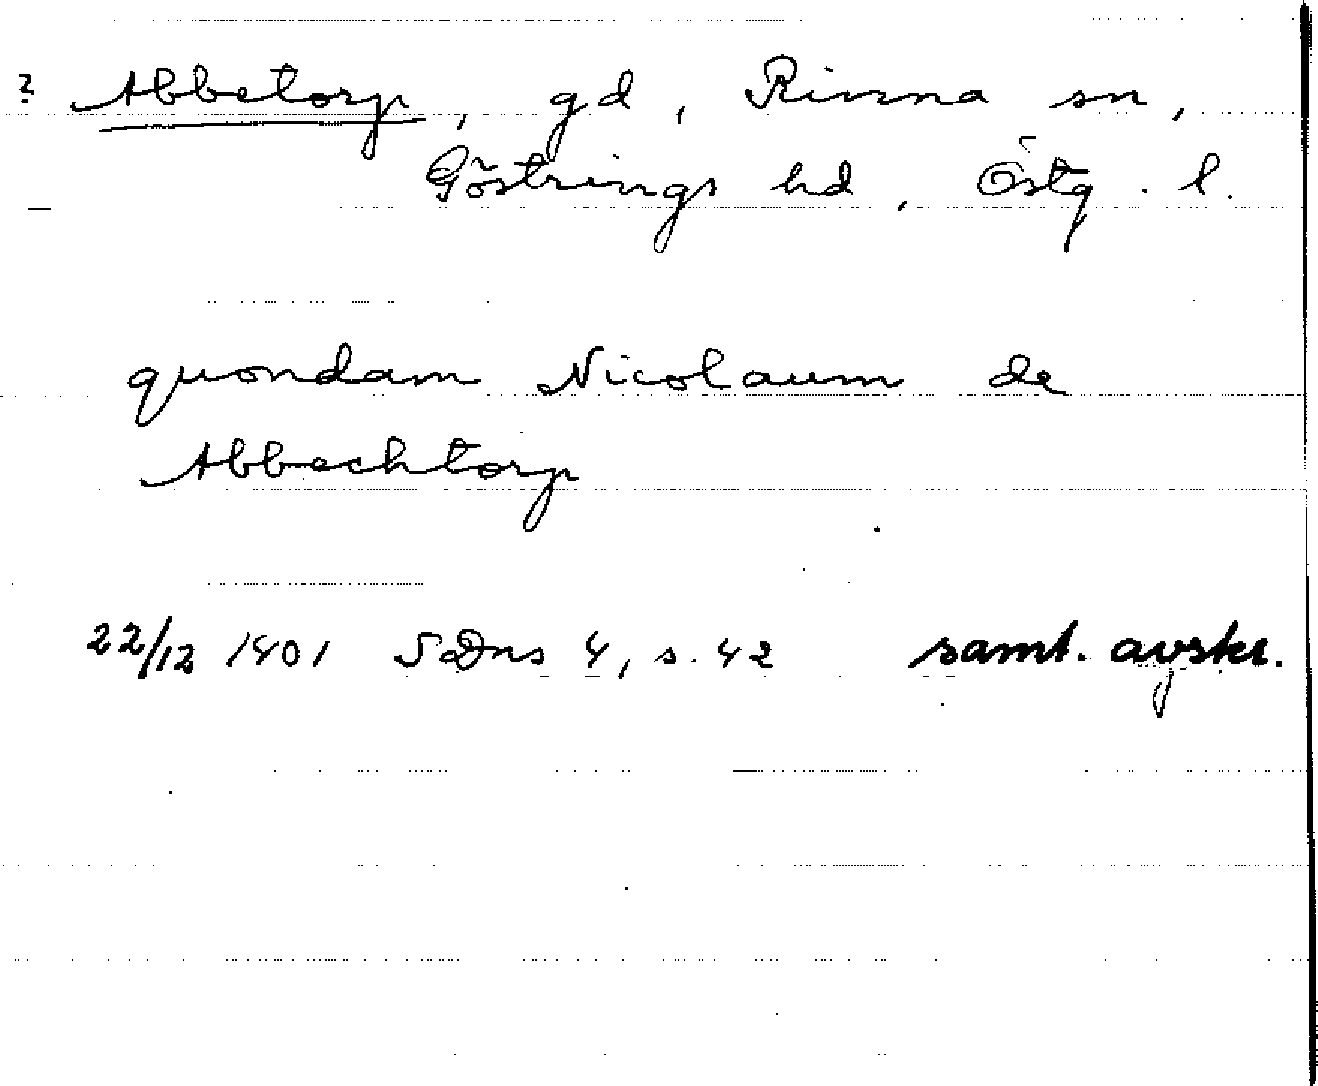 ? Abbetorp, gd, Rinna sn,
Göstrings hd, Östg. l.
quondam Nicolaum de
Abbechtorp
22/12 1401 SDns 4, s. 42 samt. avskr.